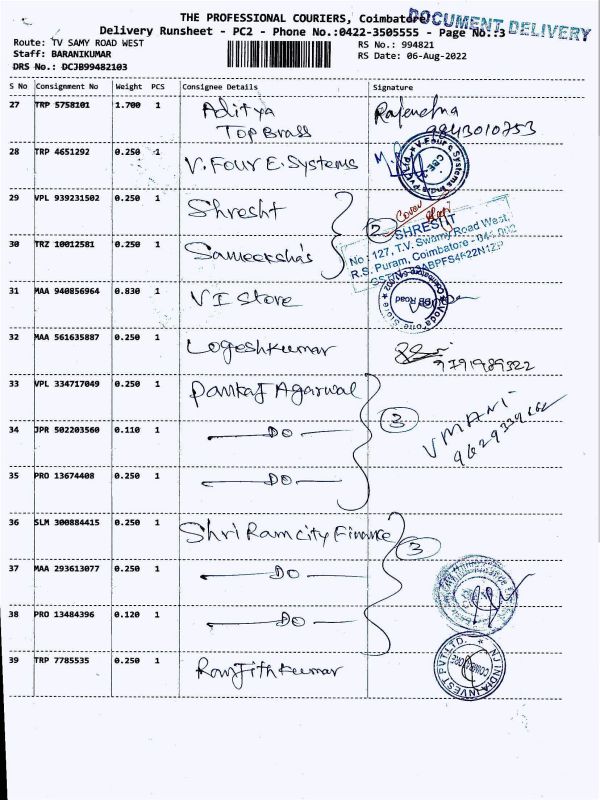 THE PROFESSIONAL COURIERS, Coimbatore
DOCUMENT DELIVERY
Delivery Runsheet - PC2 - Phone No.:0422-3505555 - Page No.:3
Route: TV SAMY ROAD WEST
RS No.: 994821
Staff: BARANIKUMAR
RS Date: 06-Aug-2022
DRS No.: DCJB99482103
S No Consignment No Weight PCS Consignee Details Signature
27 TRP 5758101 1.700 1 Aditya
Top Brass
9843010753
28 TRP 4651292 0.250 1 V. Four E. Systems
V-Four e Systems India Pvt Ltd. CBE
29 VPL 939231502 0.250 1 Shresht
2
Cover
SHRESHT
No : 127, T.V. Swamy Road West,
R.S. Puram, Coimbatore - 641 002
30 TRZ 10012581 0.250 1 Sameeksha's
31 MAA 940856964 0.830 1 VI Store
32 MAA 561635887 0.250 1 Logeshkumar
9791989322
33 VPL 334717049 0.250 1 Pankaj Agarwal
3
VMANI
34 JPR 502203560 0.110 1 DO
35 PRO 13674408 0.250 1 DO
36 SLM 300884415 0.250 1 Shri Ram city Finance
3
37 MAA 293613077 0.250 1 DO
38 PRO 13484396 0.120 1 DO
39 TRP 7785535 0.250 1 Ranjithkumar
NJ INDIA INVEST PVT LTD.